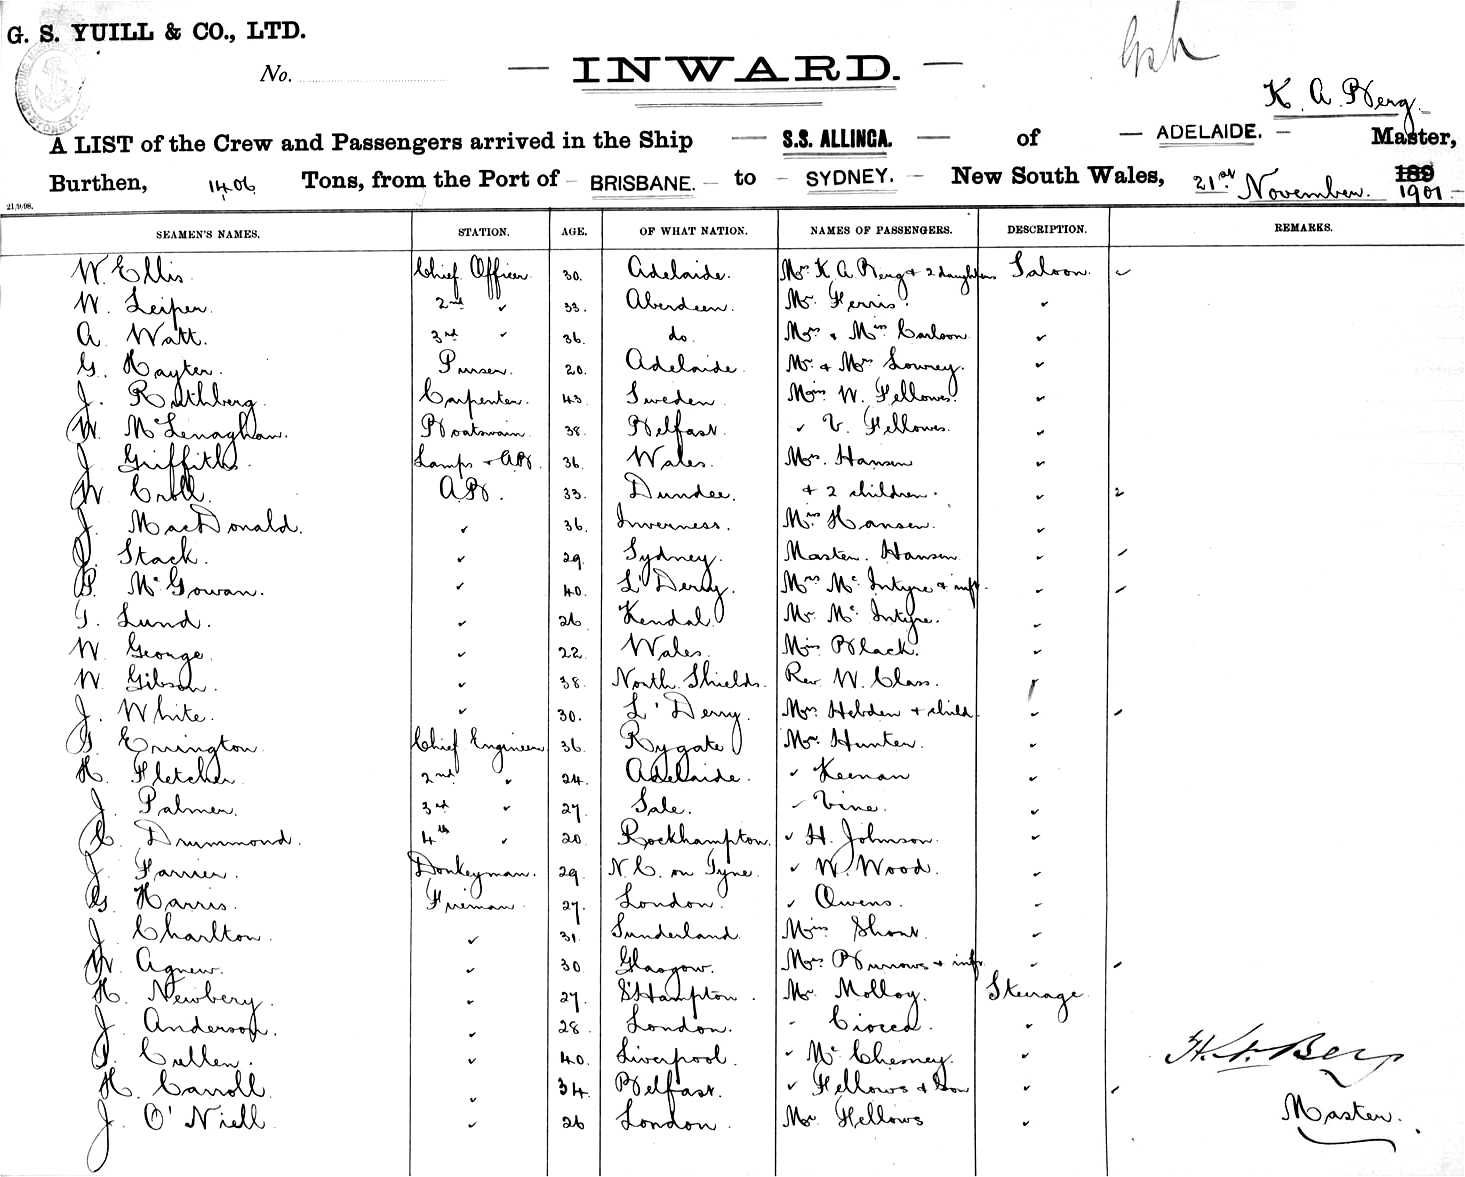 G. S. YUILL & CO., LTD.
No.
INWARD.
K. A. Berg
A LIST of the Crew and Passengers arrived in the Ship S.S. ALLINGA. of ADELAIDE. Master,
Burthen, 1406 Tons, from the Port of BRISBANE. to SYDNEY. New South Wales, 21st November. 189 1901
21/9/98.
SEAMEN'S NAMES. STATION. AGE. OF WHAT NATION. NAMES OF PASSENGERS. DESCRIPTION. REMARKS.
W. Ellis Chief Officer 30. Adelaide. Mrs K. A. Berg & 2 daughters Saloon.
W. Leiper. 2nd " 33. Aberdeen. Mr Ferris. "
A. Watt. 3rd " 36. do. Mrs & Miss Carloon "
G. Hayter. Purser. 20. Adelaide. Mr & Mrs Lowrey. "
J. Rathberg. Carpenter. 43. Sweden. Miss W. Fellows. "
W. McLenaghan. Boatswain. 38. Belfast. " V. Fellows. "
J. Griffiths. Lamps & AB. 36. Wales. Mrs. Hansen "
W. Croll. A.B. 33. Dundee. & 2 children. " 2
J. MacDonald. " 36. Inverness. Miss Hansen. "
J. Stack. " 29. Sydney. Master. Hansen "
P. McGowan. " 40. L'Derry. Mrs McIntyre & inft. "
T. Lund. " 26 Kendal Mr McIntyre. "
W. George. " 22. Wales. Miss Black. "
W. Gibson. " 38. North Shields. Rev W. Class. "
J. White. " 30. L'Derry. Mrs Hebden & child "
G. Errington. Chief Engineer 36 Rygate Mr. Hunter. "
H. Fletcher. 2nd " 24. Adelaide. " Keenan "
J. Palmer. 3rd " 27. Sale. " Vine. "
C. Drummond. 4th " 20 Rockhampton. " H. Johnson. "
J. Farrier. Donkeyman. 29. N. C. on Tyne. " W. Wood. "
G. Harris. Fireman. 27. London. " Owens. "
J. Charlton. " 31. Sunderland. Miss Short. "
W. Agnew. " 30 Glasgow. Mrs. Burrows & inft. "
H. Newbery. " 27. S'Hampton. Mr Molloy. Steerage
J. Anderson. " 28. London. " Ciocca. "
P. Cullen. " 40. Liverpool. " McChesney. "
H. Carroll " 34. Belfast. " Fellows & Son "
J. O'Niell " 26 London. Mr Fellows "
Berg
Master.